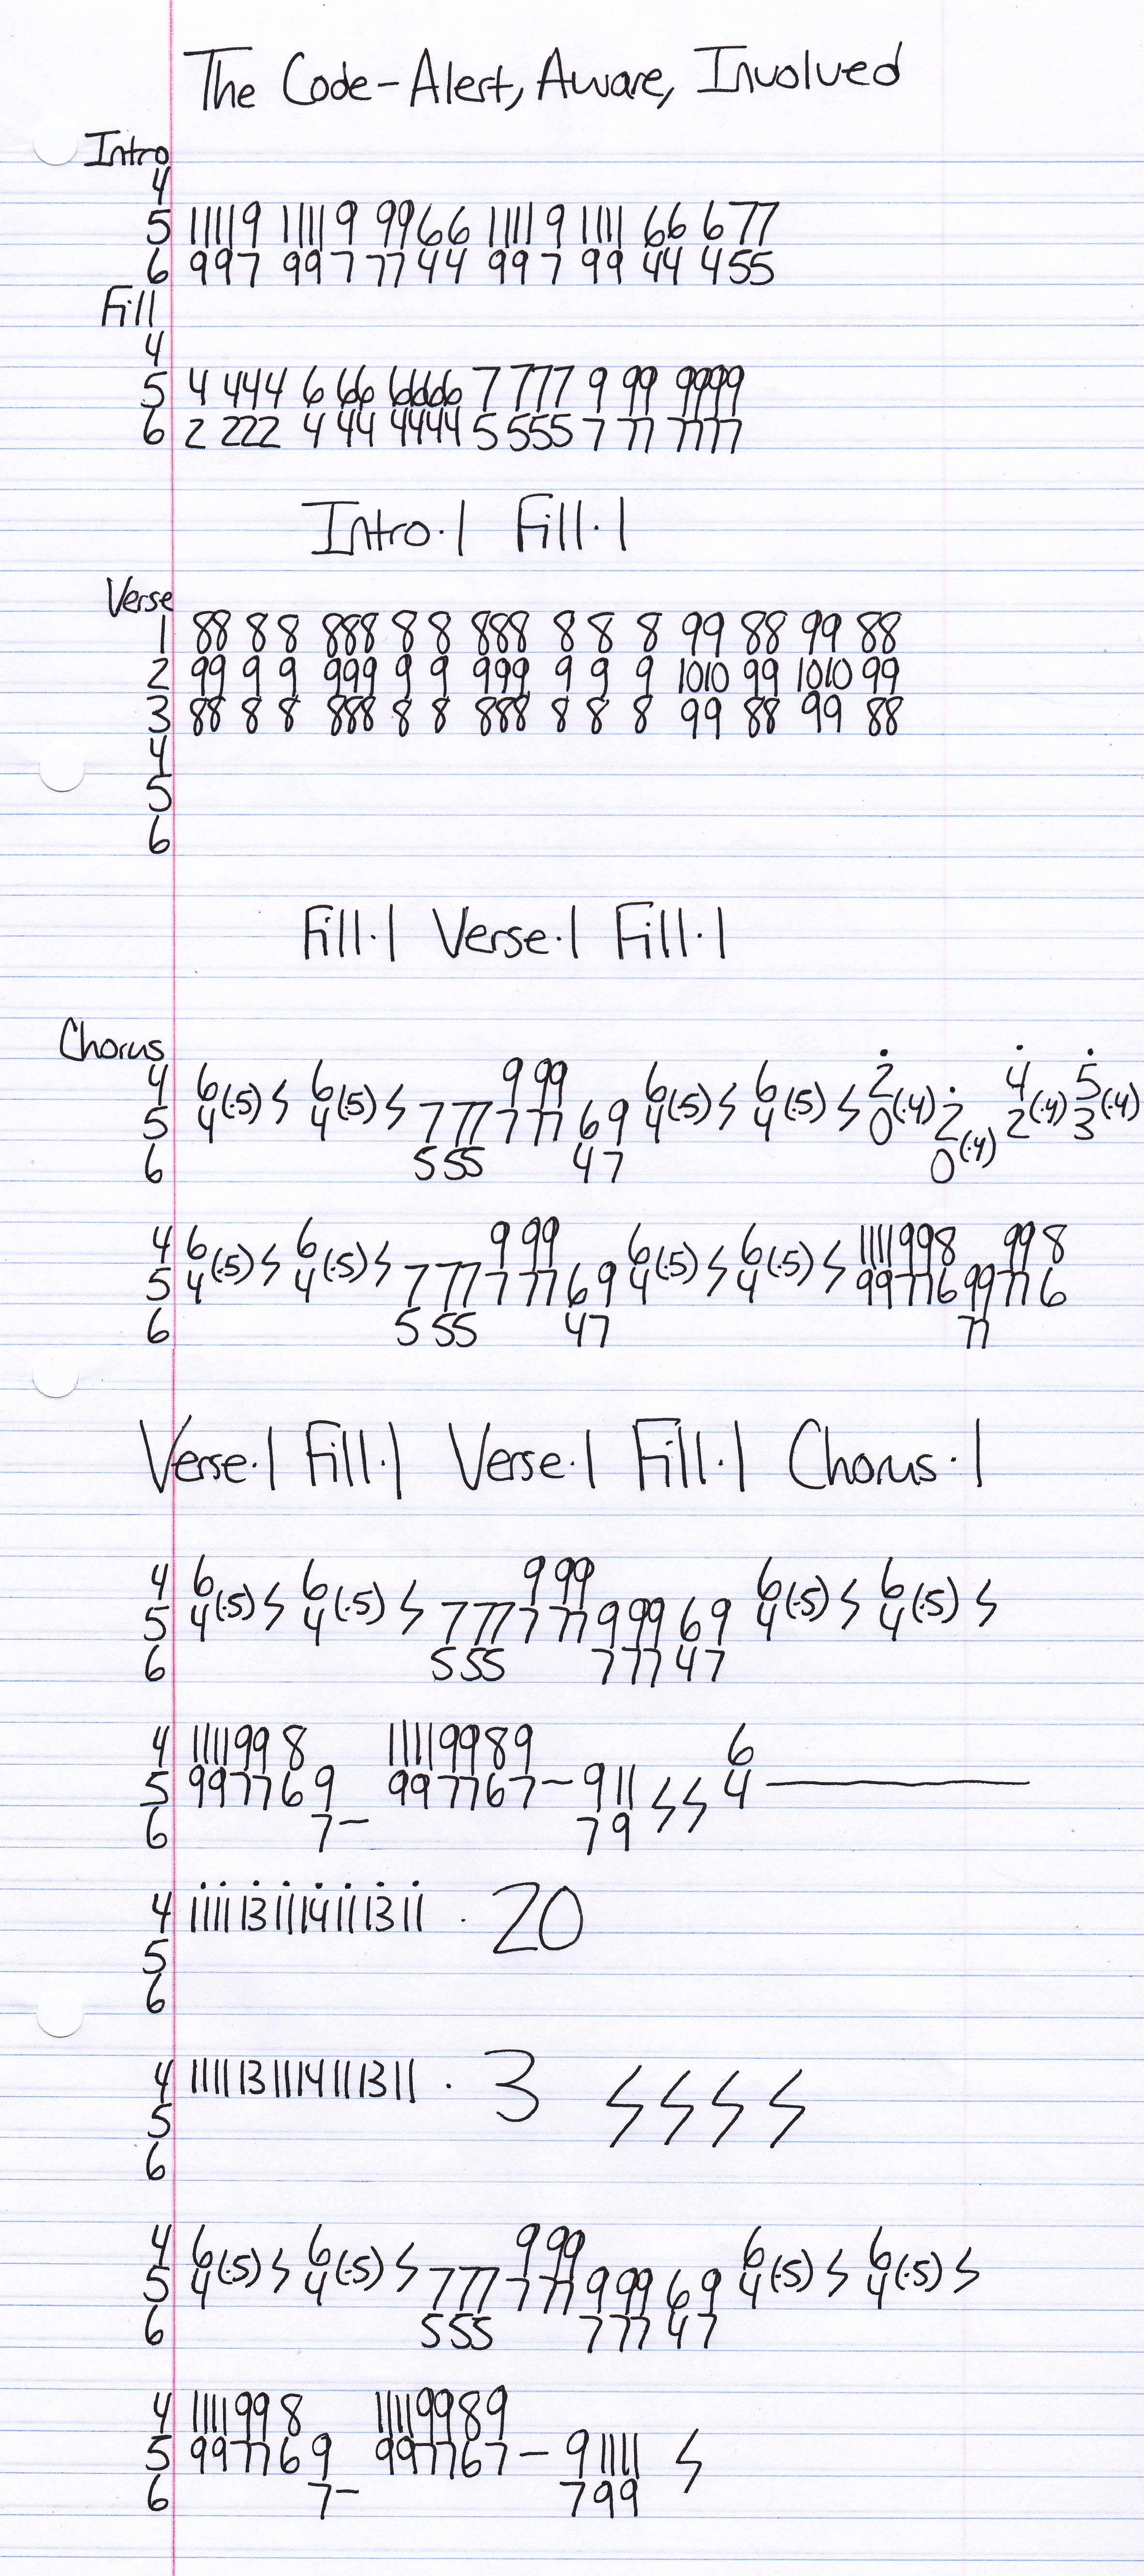 The Code-Alert, Aware, Involved
Intro
4
5 11119 11119 9966 11119 1111 66 677
6 997 997 7744 997 99 44 455
Fill
4
5 4 444 6 666 6666 7 777 9 99 9999
6 2 222 4 44 4444 5 555 7 77 7777
Intro·1 Fill·1
Verse
1 88 8 8 888 8 8 888 8 8 8 99 88 99 88
2 99 9 9 999 9 9 999 9 9 9 1010 99 1010 99
3 88 8 8 888 8 8 888 8 8 8 99 88 99 88
4
5
6
Fill·1 Verse·1 Fill·1
Chorus
4 6(.5) 6(.5) 9 99 6(.5) 6(.5) 2(.4) 4(.4) 5(.4)
5 4 4 7 77 7 77 69 4 4 0 2(.4) 2 3
6 5 55 47 0
4 6(.5) 6(.5) 9 99 6(.5) 6(.5) 1111998 998
5 4 4 7 77 7 77 69 4 4 99776 9977 6
6 5 55 47 77
Verse·1 Fill·1 Verse·1 Fill·1 Chorus·1
4 6(.5) 6(.5) 9 99 6(.5) 6(.5)
5 4 4 7 77 7 77 9 99 69 4 4
6 5 55 7 77 47
4 111199 8 11119989 6
5 997769 997767- 911 4
6 7- 79
4 1111131111411113 11 · 20
5
6
4 11111311114111311 · 3
5
6
4 6(.5) 6(.5) 9 99 6(.5) 6(.5)
5 4 4 7 77 7 77 9 99 69 4 4
6 5 55 7 77 47
4 111199 8 11119989
5 997769 997767- 91111
6 7- 799